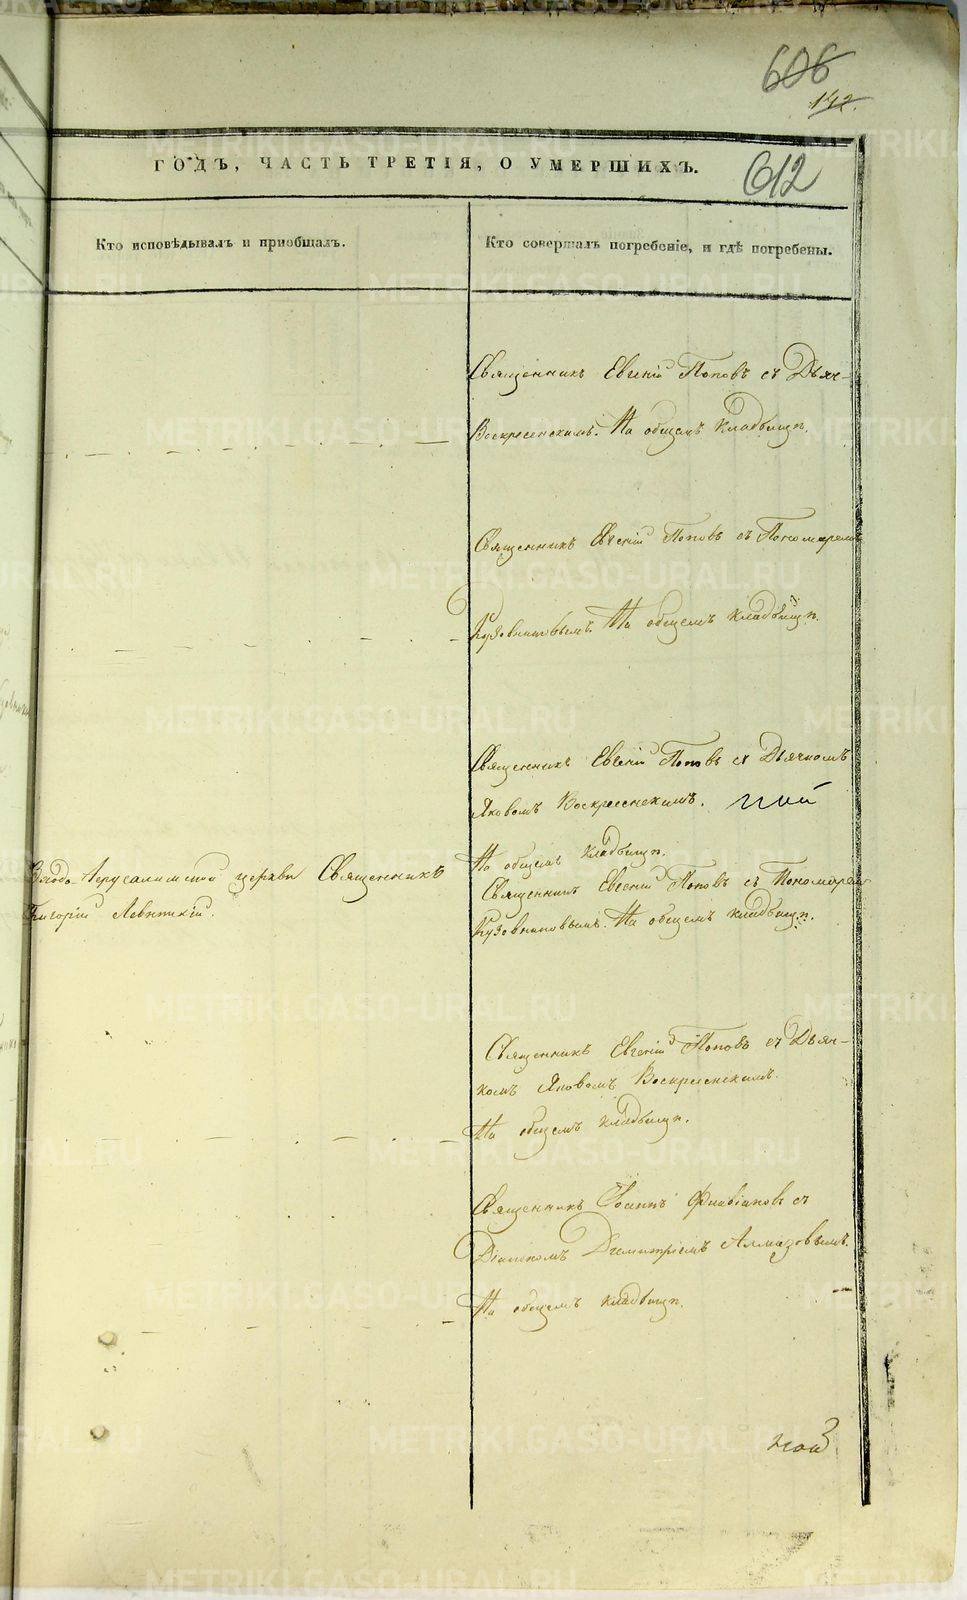 606
142.
ГОДЪ, ЧАСТЬ ТРЕТІЯ, О УМЕРШИХЪ.
612
Кто исповѣдывалъ и пріобщалъ.
Кто совершалъ погребеніе, и гдѣ погребены.
Священникъ Евгеній Поповъ съ Дьяч-
Воскресенскимъ. На общемъ кладбищѣ.
Священникъ Евгеній Поповъ съ Пономаремъ
Кузовниковымъ. На общемъ кладбищѣ.
Священникъ Евгеній Поповъ съ Дьячкомъ
Яковомъ Воскресенскимъ.
На общемъ кладбищѣ.
Входо-Іерусалимской церкви Священникъ
Григорій Левитскій.
Священникъ Евгеній Поповъ съ Пономаремъ
Кузовниковымъ. На общемъ кладбищѣ.
Священникъ Евгеній Поповъ съ Дьяч-
комъ Яковомъ Воскресенскимъ.
На общемъ кладбищѣ.
Священникъ Іоаннъ Флавіановъ съ
Діакономъ Димитріемъ Алмазовымъ.
На общемъ кладбищѣ.
METRIKI.GASO-URAL.RU